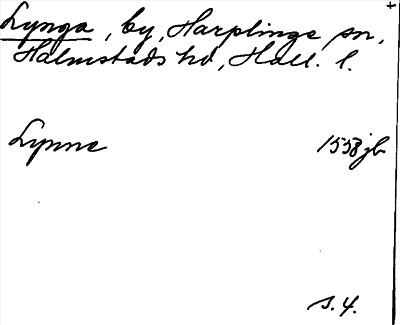 Lynga, by, Harplinge sn,
Halmstads hd, Hall. l.
Lynne 1558 jb
s. 4.